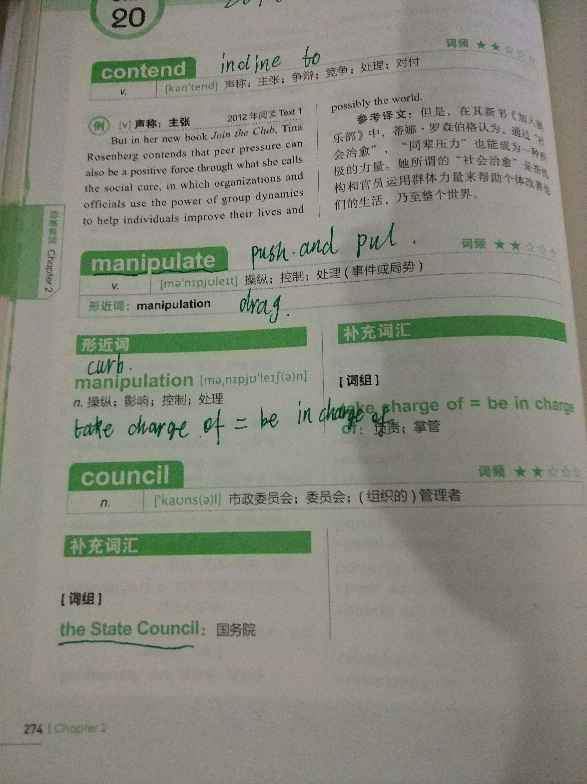 20
contend incline to
词频 ★★☆☆☆
v. [kən'tend] 声称；主张；争辩；竞争；处理；对付
例 [v] 声称；主张 2012年阅读 Text 1
But in her new book Join the Club, Tina
Rosenberg contends that peer pressure can
also be a positive force through what she calls
the social cure, in which organizations and
officials use the power of group dynamics
to help individuals improve their lives and
possibly the world.
参考译文：但是，在其新书《加入俱
乐部》中，蒂娜·罗森伯格认为，通过“社
会治愈”，“同辈压力”也能成为一种积
极的力量。她所谓的“社会治愈”是指机
构和官员运用群体力量来帮助个体改善他
们的生活，乃至整个世界。
Chapter 2
manipulate push and pul.
词频 ★★☆☆☆
v. [mə'nɪpjuleɪt] 操纵；控制；处理（事件或局势）
形近词：manipulation drag.
形近词
curb.
manipulation [mə,nɪpju'leɪʃ(ə)n]
n. 操纵；影响；控制；处理
take charge of = be in charge of
补充词汇
[词组]
take charge of = be in charge
of：负责；掌管
council
词频 ★★☆☆☆
n. ['kaʊns(ə)l] 市政委员会；委员会；（组织的）管理者
补充词汇
[词组]
the State Council：国务院
274 | Chapter 2